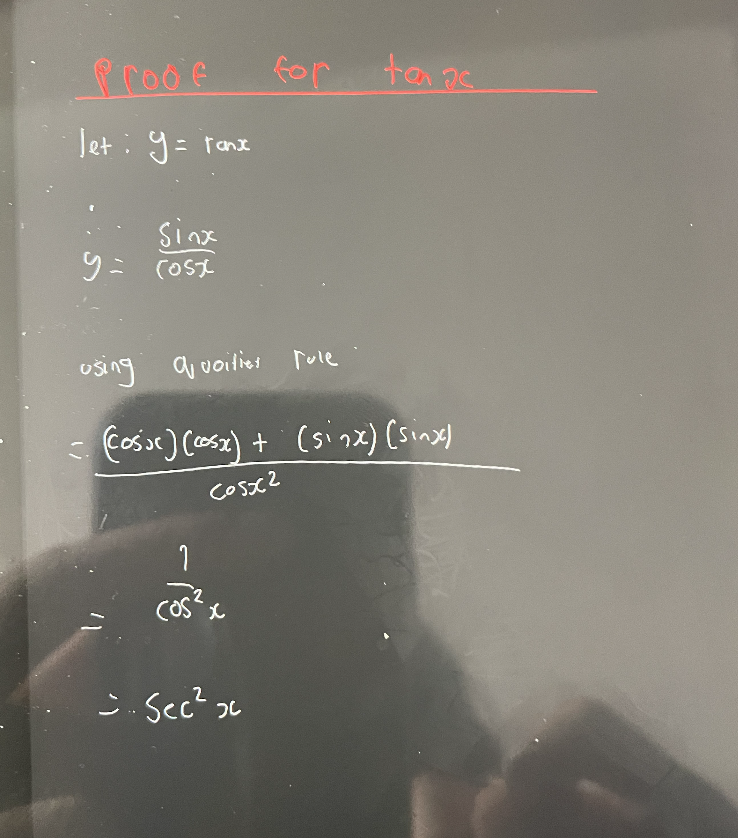 Proof for tanx
let: y = tanx
y = sinx/cosx
using rule
= (cosx)(cosx) + (sinx)(sinx)
cosx²
= 1/cos²x
= Sec²x